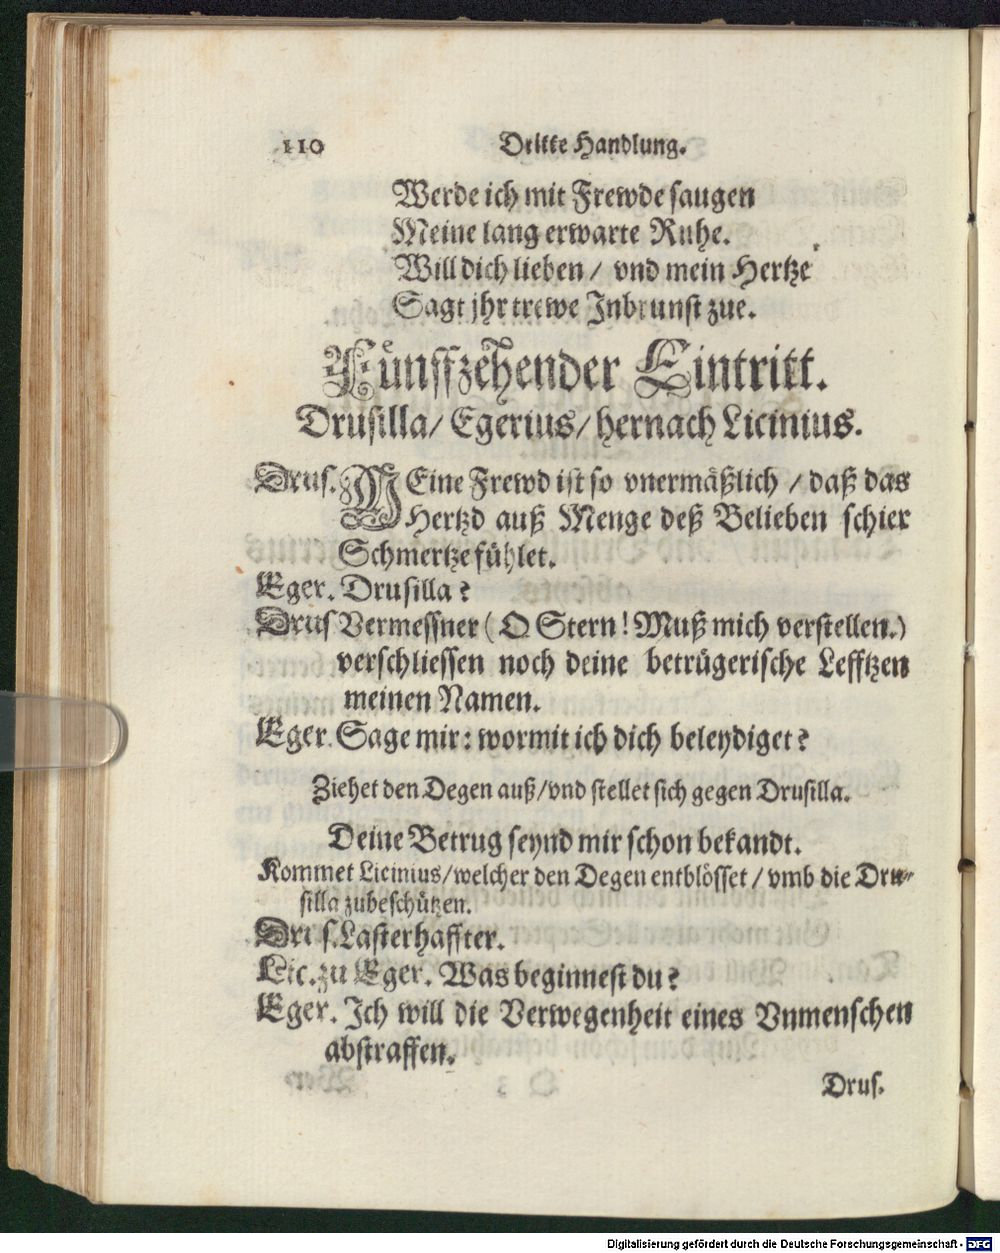 110 Dritte Handlung.
Werde ich mit Frewde saugen
Meine lang erwarte Ruhe.
Will dich lieben / vnd mein Hertze
Sagt jhr trewe Inbrunst zue.
Fünffzehender Eintritt.
Drusilla/ Egerius/ hernach Licinius.
Drus. MEine Frewd ist so vnermäßlich / daß das
Hertzd auß Menge deß Belieben schier
Schmertze fühlet.
Eger. Drusilla?
Drus Vermessner (O Stern! Muß mich verstellen.)
verschliessen noch deine betrügerische Lefftzen
meinen Namen.
Eger. Sage mir: wormit ich dich beleydiget?
Ziehet den Degen auß/vnd stellet sich gegen Drusilla.
Deine Betrug seynd mir schon bekandt.
Kommet Licinius/welcher den Degen entblösset / vmb die Dru-
silla zubeschützen.
Drus. Lasterhaffter.
Lic. zu Eger. Was beginnest du?
Eger. Ich will die Verwegenheit eines Vnmenschen
abstraffen.
Drus.
Digitalisierung gefördert durch die Deutsche Forschungsgemeinschaft - DFG